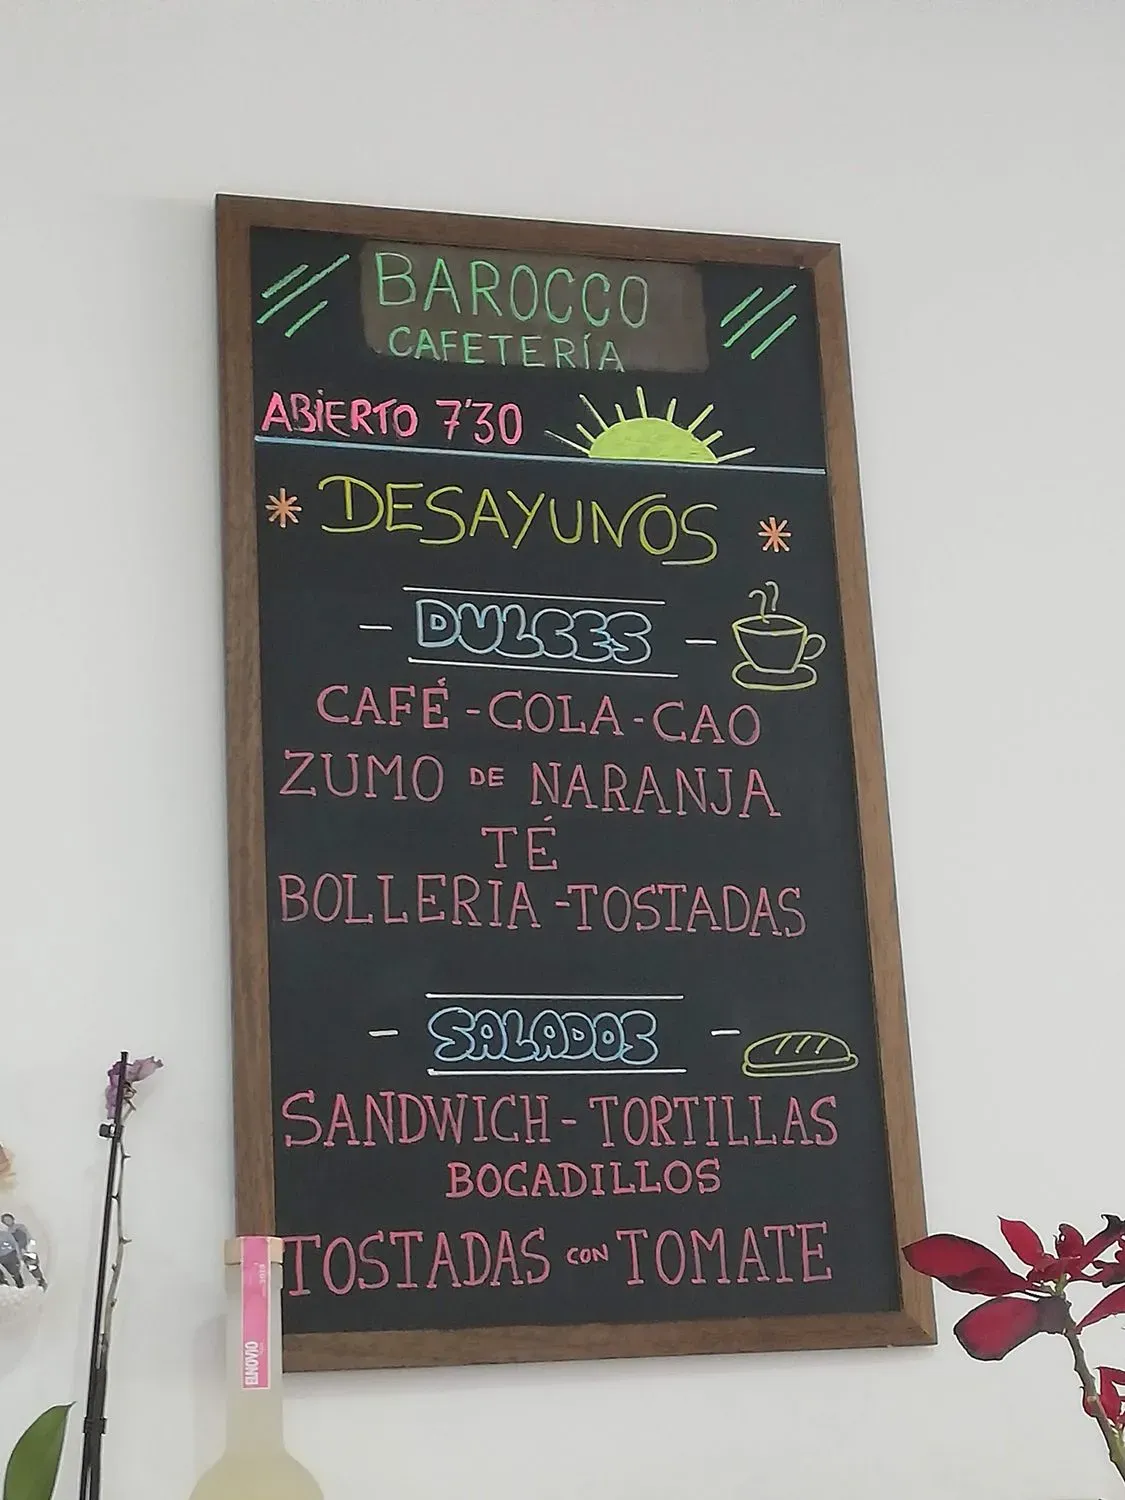 BAROCCO
CAFETERÍA
ABIERTO 7'30
DESAYUNOS
DULCES
CAFÉ - COLA - CAO
ZUMO DE NARANJA
TÉ
BOLLERIA - TOSTADAS
SALADOS
SANDWICH - TORTILLAS
BOCADILLOS
TOSTADAS CON TOMATE
ELNOVIO